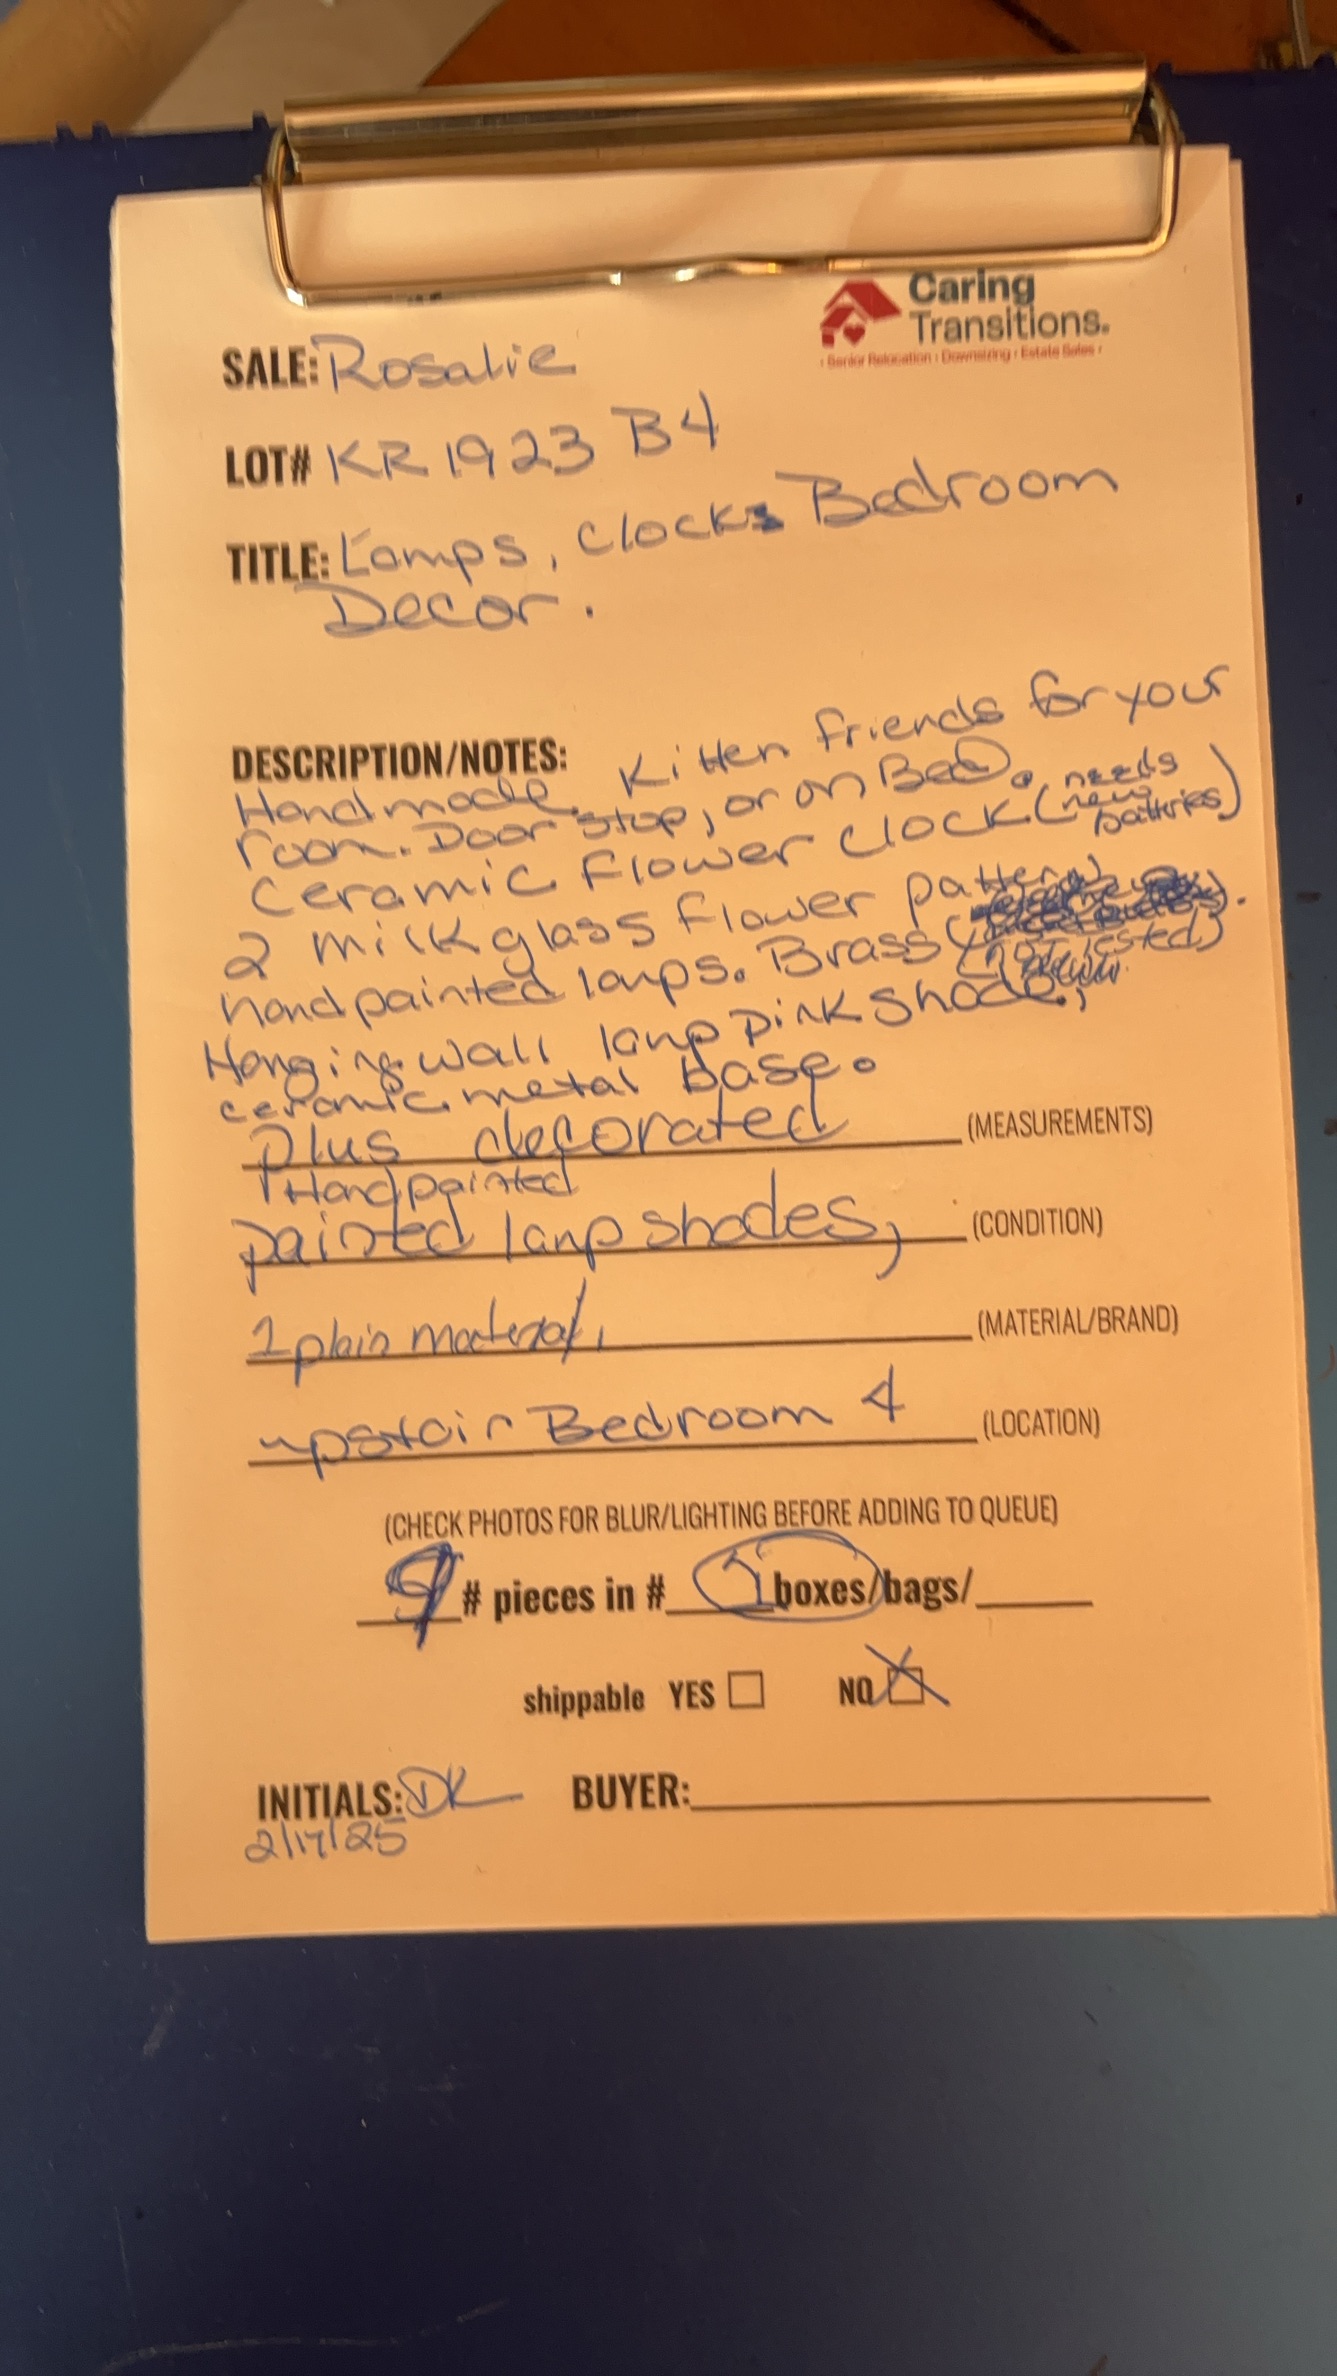 Caring
Transitions.
Senior Relocation • Downsizing • Estate Sales
SALE: Rosalie
LOT# KR 1923 B4
TITLE: Lamps, Clocks Bedroom
Decor.
DESCRIPTION/NOTES:
Handmade. Kitten friends for your
room. Door stop, or on Bed.
Ceramic Flower Clock (needs new batteries)
2 milk glass flower pattern
hand painted lamps. Brass (not tested)
Hanging wall lamp pink shade,
ceramic metal base.
plus decorated (MEASUREMENTS)
1 Hand painted
painted lamp shades, (CONDITION)
1 plain material, (MATERIAL/BRAND)
upstair Bedroom 4 (LOCATION)
(CHECK PHOTOS FOR BLUR/LIGHTING BEFORE ADDING TO QUEUE)
9 # pieces in # 1 boxes/bags/
shippable YES NO
INITIALS: DK BUYER:
2/17/25